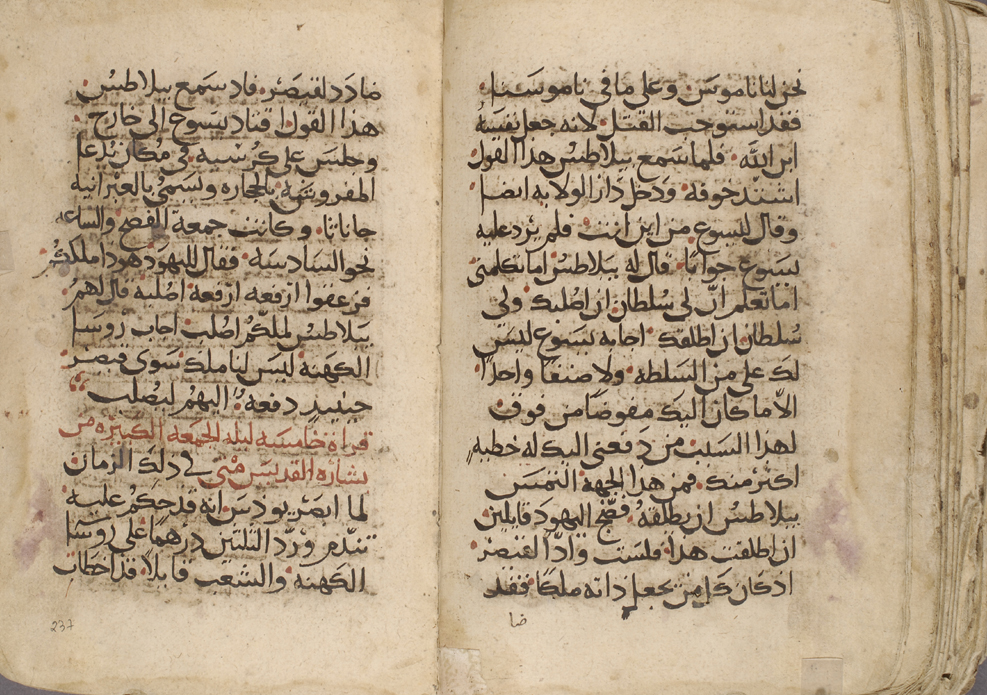 نحن لنا ناموس وعلى ما في ناموسنا
فقد استوجب القتل لانه جعل نفسه
ابن الله فلما سمع بيلاطس هذا القول
اشتد خوفه ودخل دار الولايه ايضا
وقال ليسوع من اين انت فلم يرد عليه
يسوع جوابا قال له بيلاطس اما تكلمني
اما تعلم ان لي سلطان ان اصلبك ولي
سلطان ان اطلقك اجابه يسوع ليس
لك علي من السلطه ولا صنفا واحدا
الا ما كان اليك مفوضا من فوق
لهذا السبب من دفعني اليك له خطيه
اكثر منك فمن هذا الجهة التمس
بيلاطس ان يطلقه فضج اليهود قايلين
ان اطلقت هذا فلست وادا لقيصر
اذ كان كل من يجعل ذاته ملكا فقد
ضا
ضادد لقيصر فاذ سمع بيلاطس
هذا القول اقتاد يسوع الى خارج
وجلس على كرسيه في مكان يدعا
المفروشه بالحجاره ويسمى بالعبرانيه
جاباثا وكانت جمعة الفصح والساعه
نحو السادسه فقال لليهود هوذا ملككم
فزعقوا ارفعه ارفعه اصلبه قال لهم
بيلاطس لملككم اصلب اجاب روسا
الكهنه ليس لنا ملك سوى قيصر
حينيذ دفعه اليهم ليصلب
قراة خامسه ليلة الجمعه الكبيره من
بشارة القديس متى في ذلك الزمان
لما ابصر يودس انه قد حكم عليه
تندم ورد الثلثين درهما على روسا
الكهنه والشعب قايلا قد اخطات
237